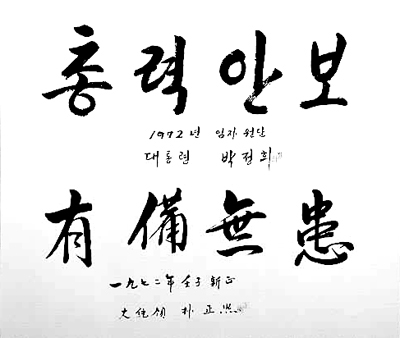 총력안보
1972년 임자 원단
대통령 박정희
有備無患
一九七二年 壬子 新正
大統領 朴正熙